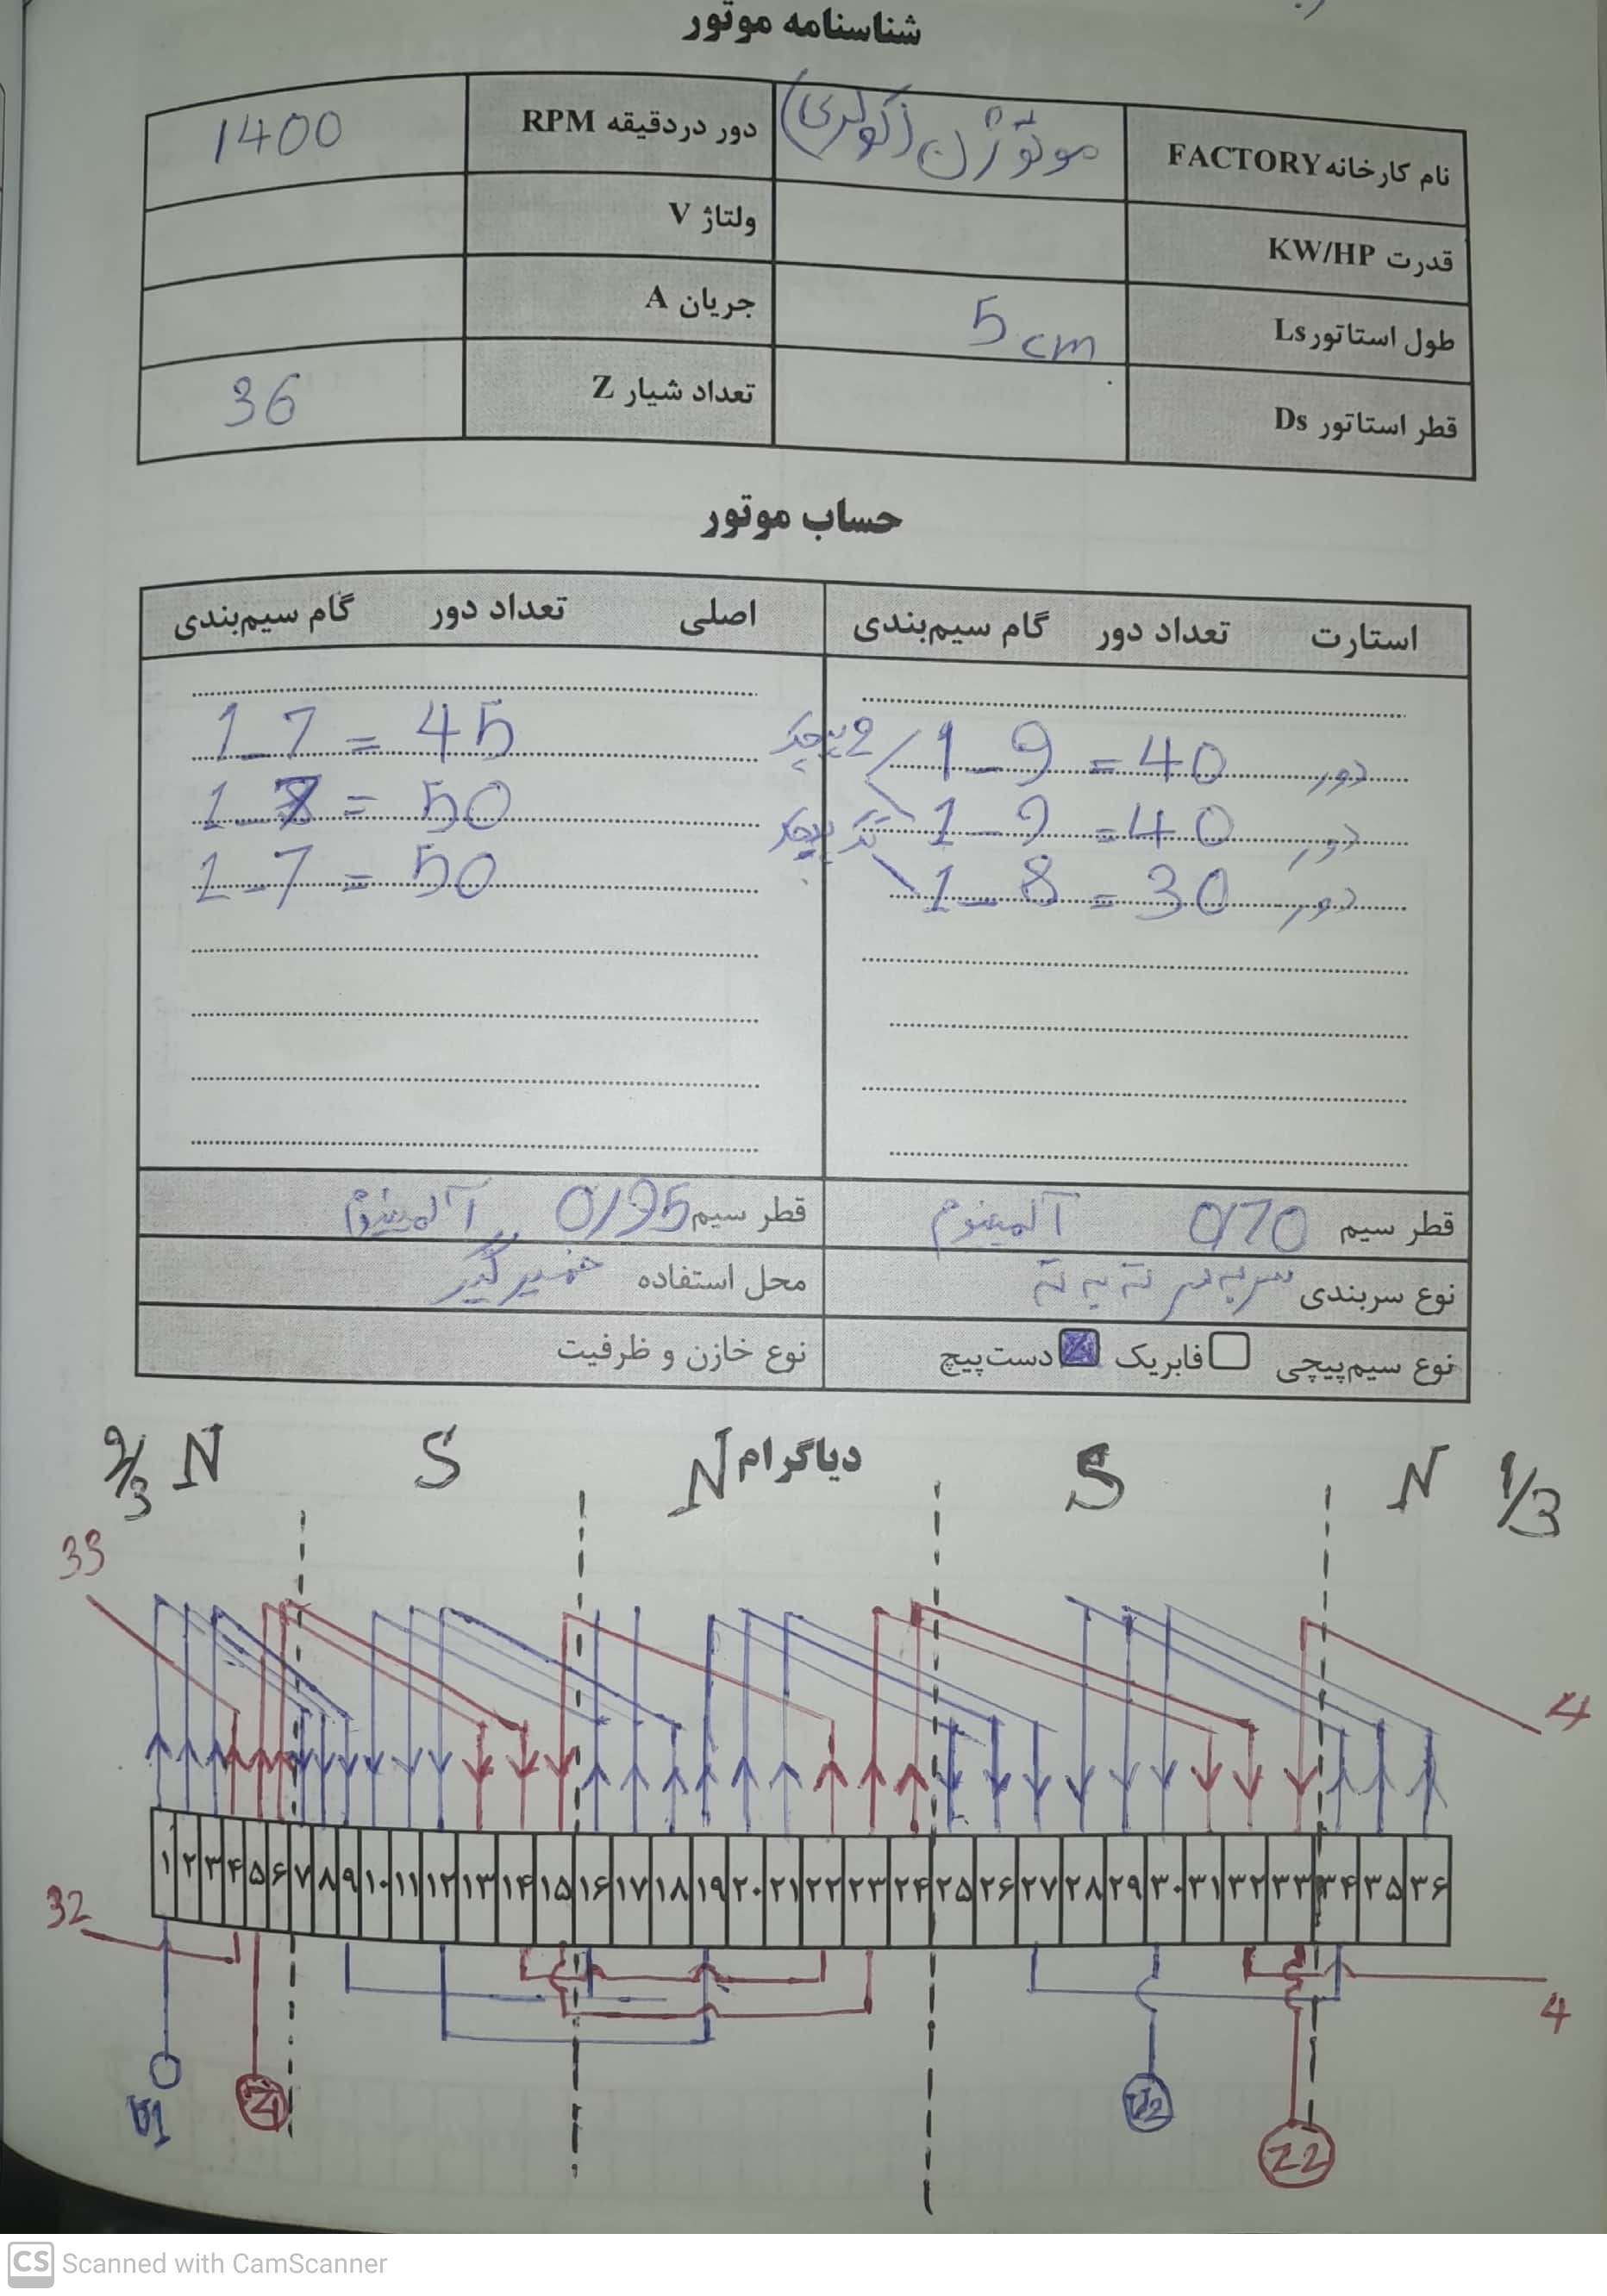 شناسنامه موتور
نام کارخانه FACTORY موتوژن (کولری) دور در دقیقه RPM 1400
قدرت KW/HP ولتاژ V
طول استاتور Ls 5 cm جریان A
قطر استاتور Ds تعداد شیار Z 36
حساب موتور
استارت تعداد دور گام سیم‌بندی اصلی تعداد دور گام سیم‌بندی
2 پیچک 1-9 = 40 دور 1-7 = 45
تک پیچک 1-9 = 40 دور 1-8 = 50
1-8 = 30 دور 1-7 = 50
قطر سیم 0/70 آلمینوم قطر سیم 0/95 آلمینوم
نوع سربندی سر به سر ته به ته محل استفاده خمیر گیر
نوع سیم‌پیچی فابریک دست‌پیچ نوع خازن و ظرفیت
دیاگرام
2/3 N S N S N 1/3
33
4
۱ ۲ ۳ ۴ ۵ ۶ ۷ ۸ ۹ ۱۰ ۱۱ ۱۲ ۱۳ ۱۴ ۱۵ ۱۶ ۱۷ ۱۸ ۱۹ ۲۰ ۲۱ ۲۲ ۲۳ ۲۴ ۲۵ ۲۶ ۲۷ ۲۸ ۲۹ ۳۰ ۳۱ ۳۲ ۳۳ ۳۴ ۳۵ ۳۶
32
4
U1 Z1 U2 Z2
CS Scanned with CamScanner